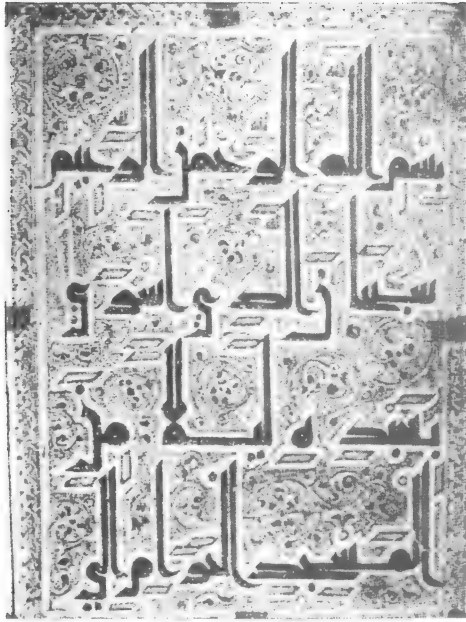 بسم الله الرحمن الرحيم
سبحان الذي اسري
بعبده ليلا من
المسجد الحرام الي